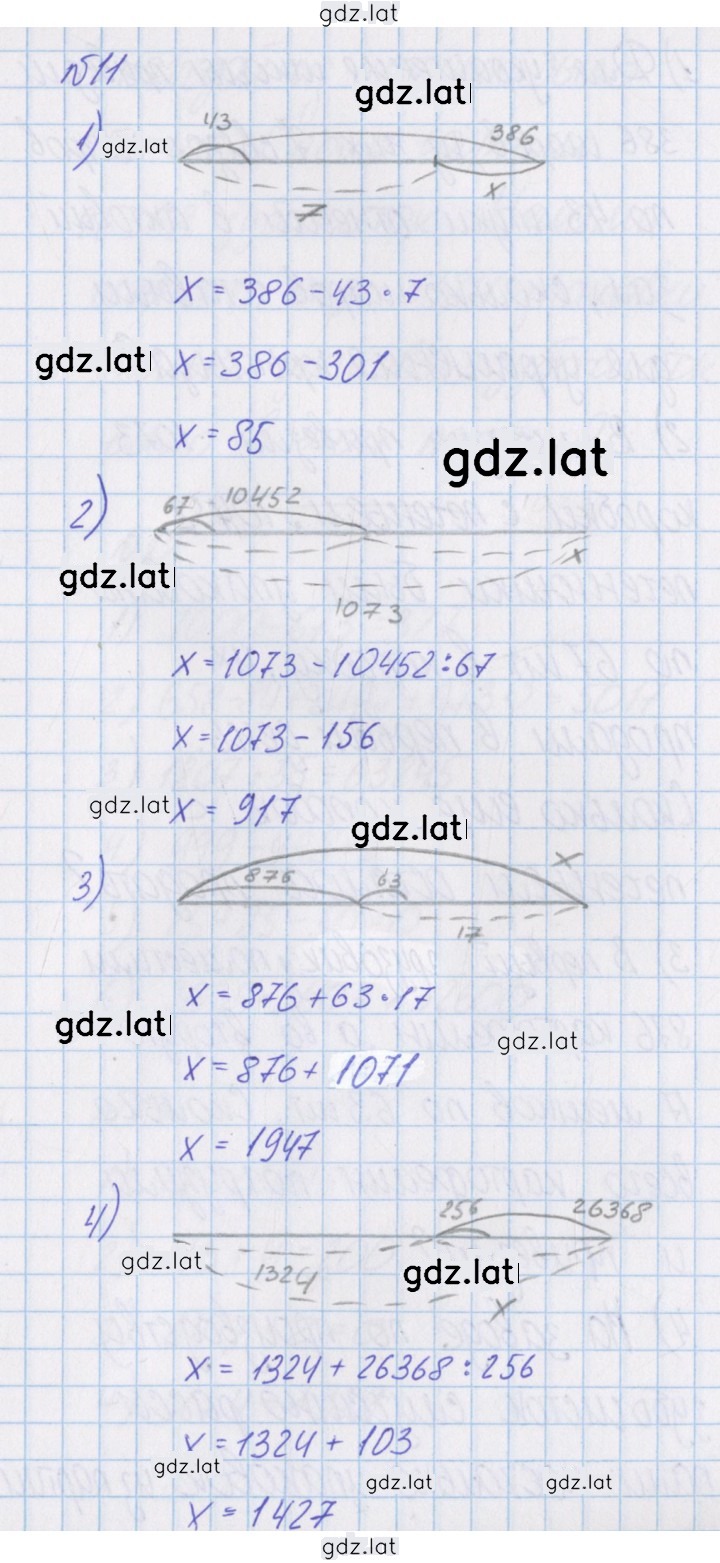 gdz.lat
№11
gdz.lat
1) gdz.lat 43 386
7 x
x = 386 - 43 · 7
gdz.lat x = 386 - 301
x = 85
gdz.lat
2) 67 10452
x
gdz.lat
1073
x = 1073 - 10452 : 67
x = 1073 - 156
gdz.lat x = 917
gdz.lat
3) 876 63 x
17
x = 876 + 63 · 17
gdz.lat
gdz.lat
x = 876 + 1071
x = 1947
4) 256 26368
gdz.lat 1324 gdz.lat
x
x = 1324 + 26368 : 256
x = 1324 + 103
gdz.lat
gdz.lat gdz.lat
x = 1427
gdz.lat